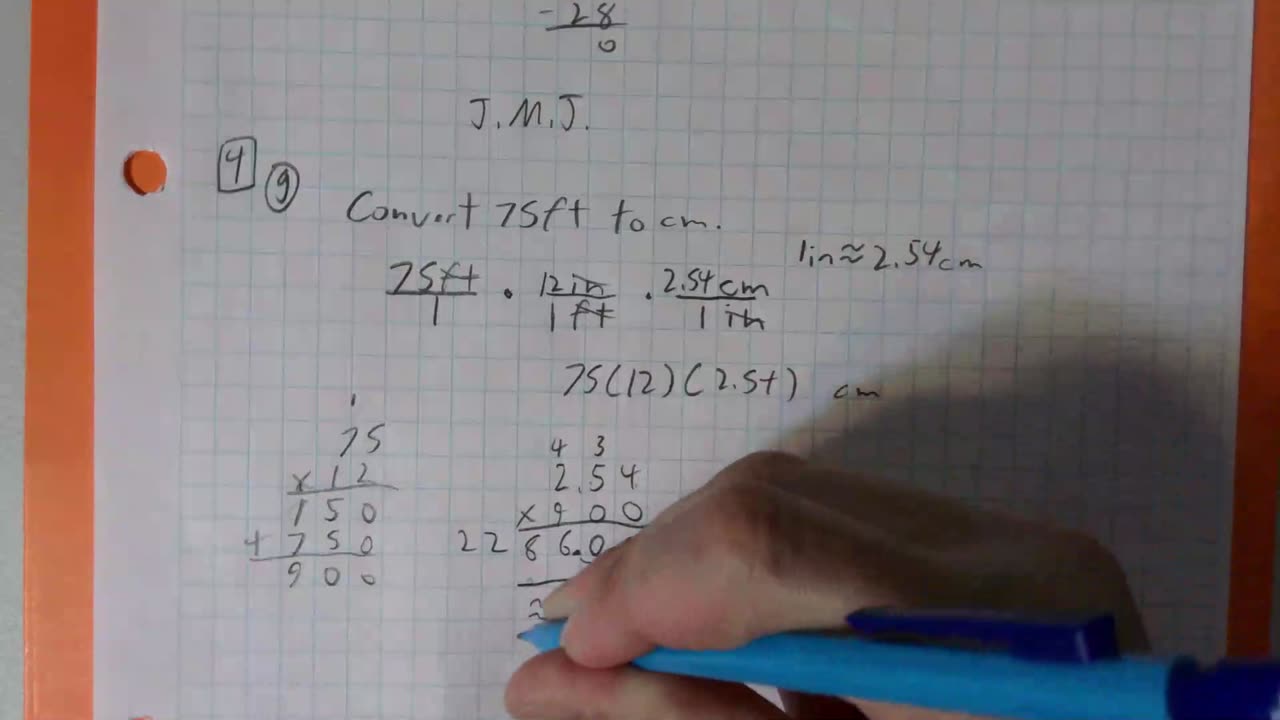 - 28
0
J.M.J.
4 g Convert 75ft to cm.
1in ≈ 2.54cm
75ft/1 · 12in/1ft · 2.54cm/1in
75(12)(2.54) cm
1
75
x12
150
+750
900
4 3
2.54
x900
2286.0
≈